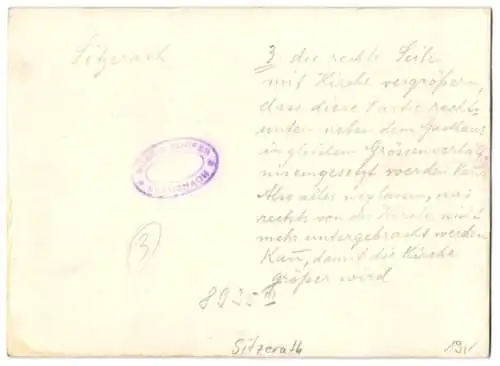 Sitzerath
3 die rechte Seite
mit Kirche vergrößern,
dass diese Partie rechts
unten neben dem Gasthaus
in gleichem Grössenverhält
nis eingesetzt werden kann
Also alles weglassen, was
rechts von der Kirche nicht
mehr untergebracht werden
kann, damit die Kirche
größer wird
KREUZNACH
3
8935
Sitzerath